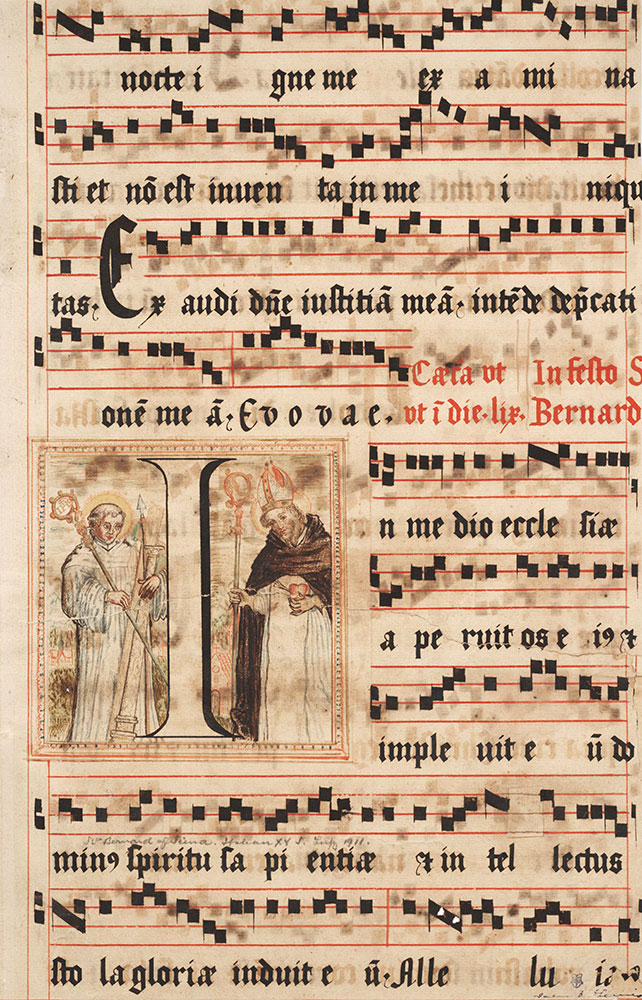 nocte i gne me ex a mi na
sti et nō est inven ta in me i niqu
tas. Ex audi dn̄e iustitiā meā. intēde dep̄cati
onē me ā. Evovae. Cæca ut In festo S
ut ī die. lix. Bernard
In me dio eccle siæ
a pe ruit os e i9 &
imple vit e ū do
min9 spiritu sa pi entiæ & in tel lectus
St Bernard of Siena. Italian XV S. 1911.
sto la gloriæ induit e ū. Alle lu ia